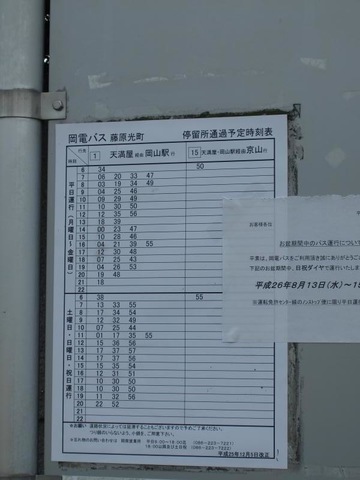 岡電バス 藤原光町 停留所通過予定時刻表
行先 1 天満屋 経由 岡山駅 行 15 天満屋・岡山駅経由 京山 行
時刻
平日運行(月曜日～金曜日)
6 34 50
7 06 20 33 47
8 03 19 34 49
9 04 25 46
10 09 29 49
11 10 30 50
12 12 35 56
13 18 39
14 00 23 47
15 10 28 46
16 04 21 39 55
17 12 30 48
18 07 25 43
19 04 26 53
20 19 48
21 18
土曜日・日曜日・祝日運行
6 38 55
7 13 33 55
8 17 34 54
9 12 32 49
10 07 25 44
11 01 17 35 55
12 15 36 56
13 17 37 57
14 17 37 56
15 15 35 54
16 12 31 51
17 10 30 50
18 10 30 50
19 12 32 51
20 22 52
平成25年12月5日改正
お客様各位
お盆期間中のバス運行につい
平素は、岡電バスをご利用頂き誠にありがとうご
下記のお盆期間中、日祝ダイヤで運行いたしま
平成26年8月13日(水)～15